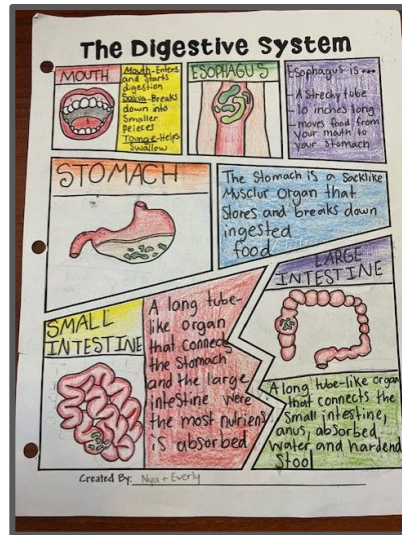 The Digestive System
MOUTH
Mouth-Enters
and Starts
digestion
Saliva-Breaks
down into
Smaller
Peieces
Tounge-Helps
Swallow
ESOPHAGUS
Esophagus is...
- A Strechy tube
- 10 inches long
- moves food from
your mouth to
your stomach
STOMACH
The Stomach is a Sacklike
Musclur Organ that
Stores and breaks down
ingested
food
SMALL
INTESTINE
A long tube-
like organ
that connects
the Stomach
and the large
intestine were
the most nutriens
is absorbed
LARGE
INTESTINE
A long tube-like organ
that connects the
Small intestine,
anus, absorbed
water, and hardend
Stool
Created By: Nya + Everly